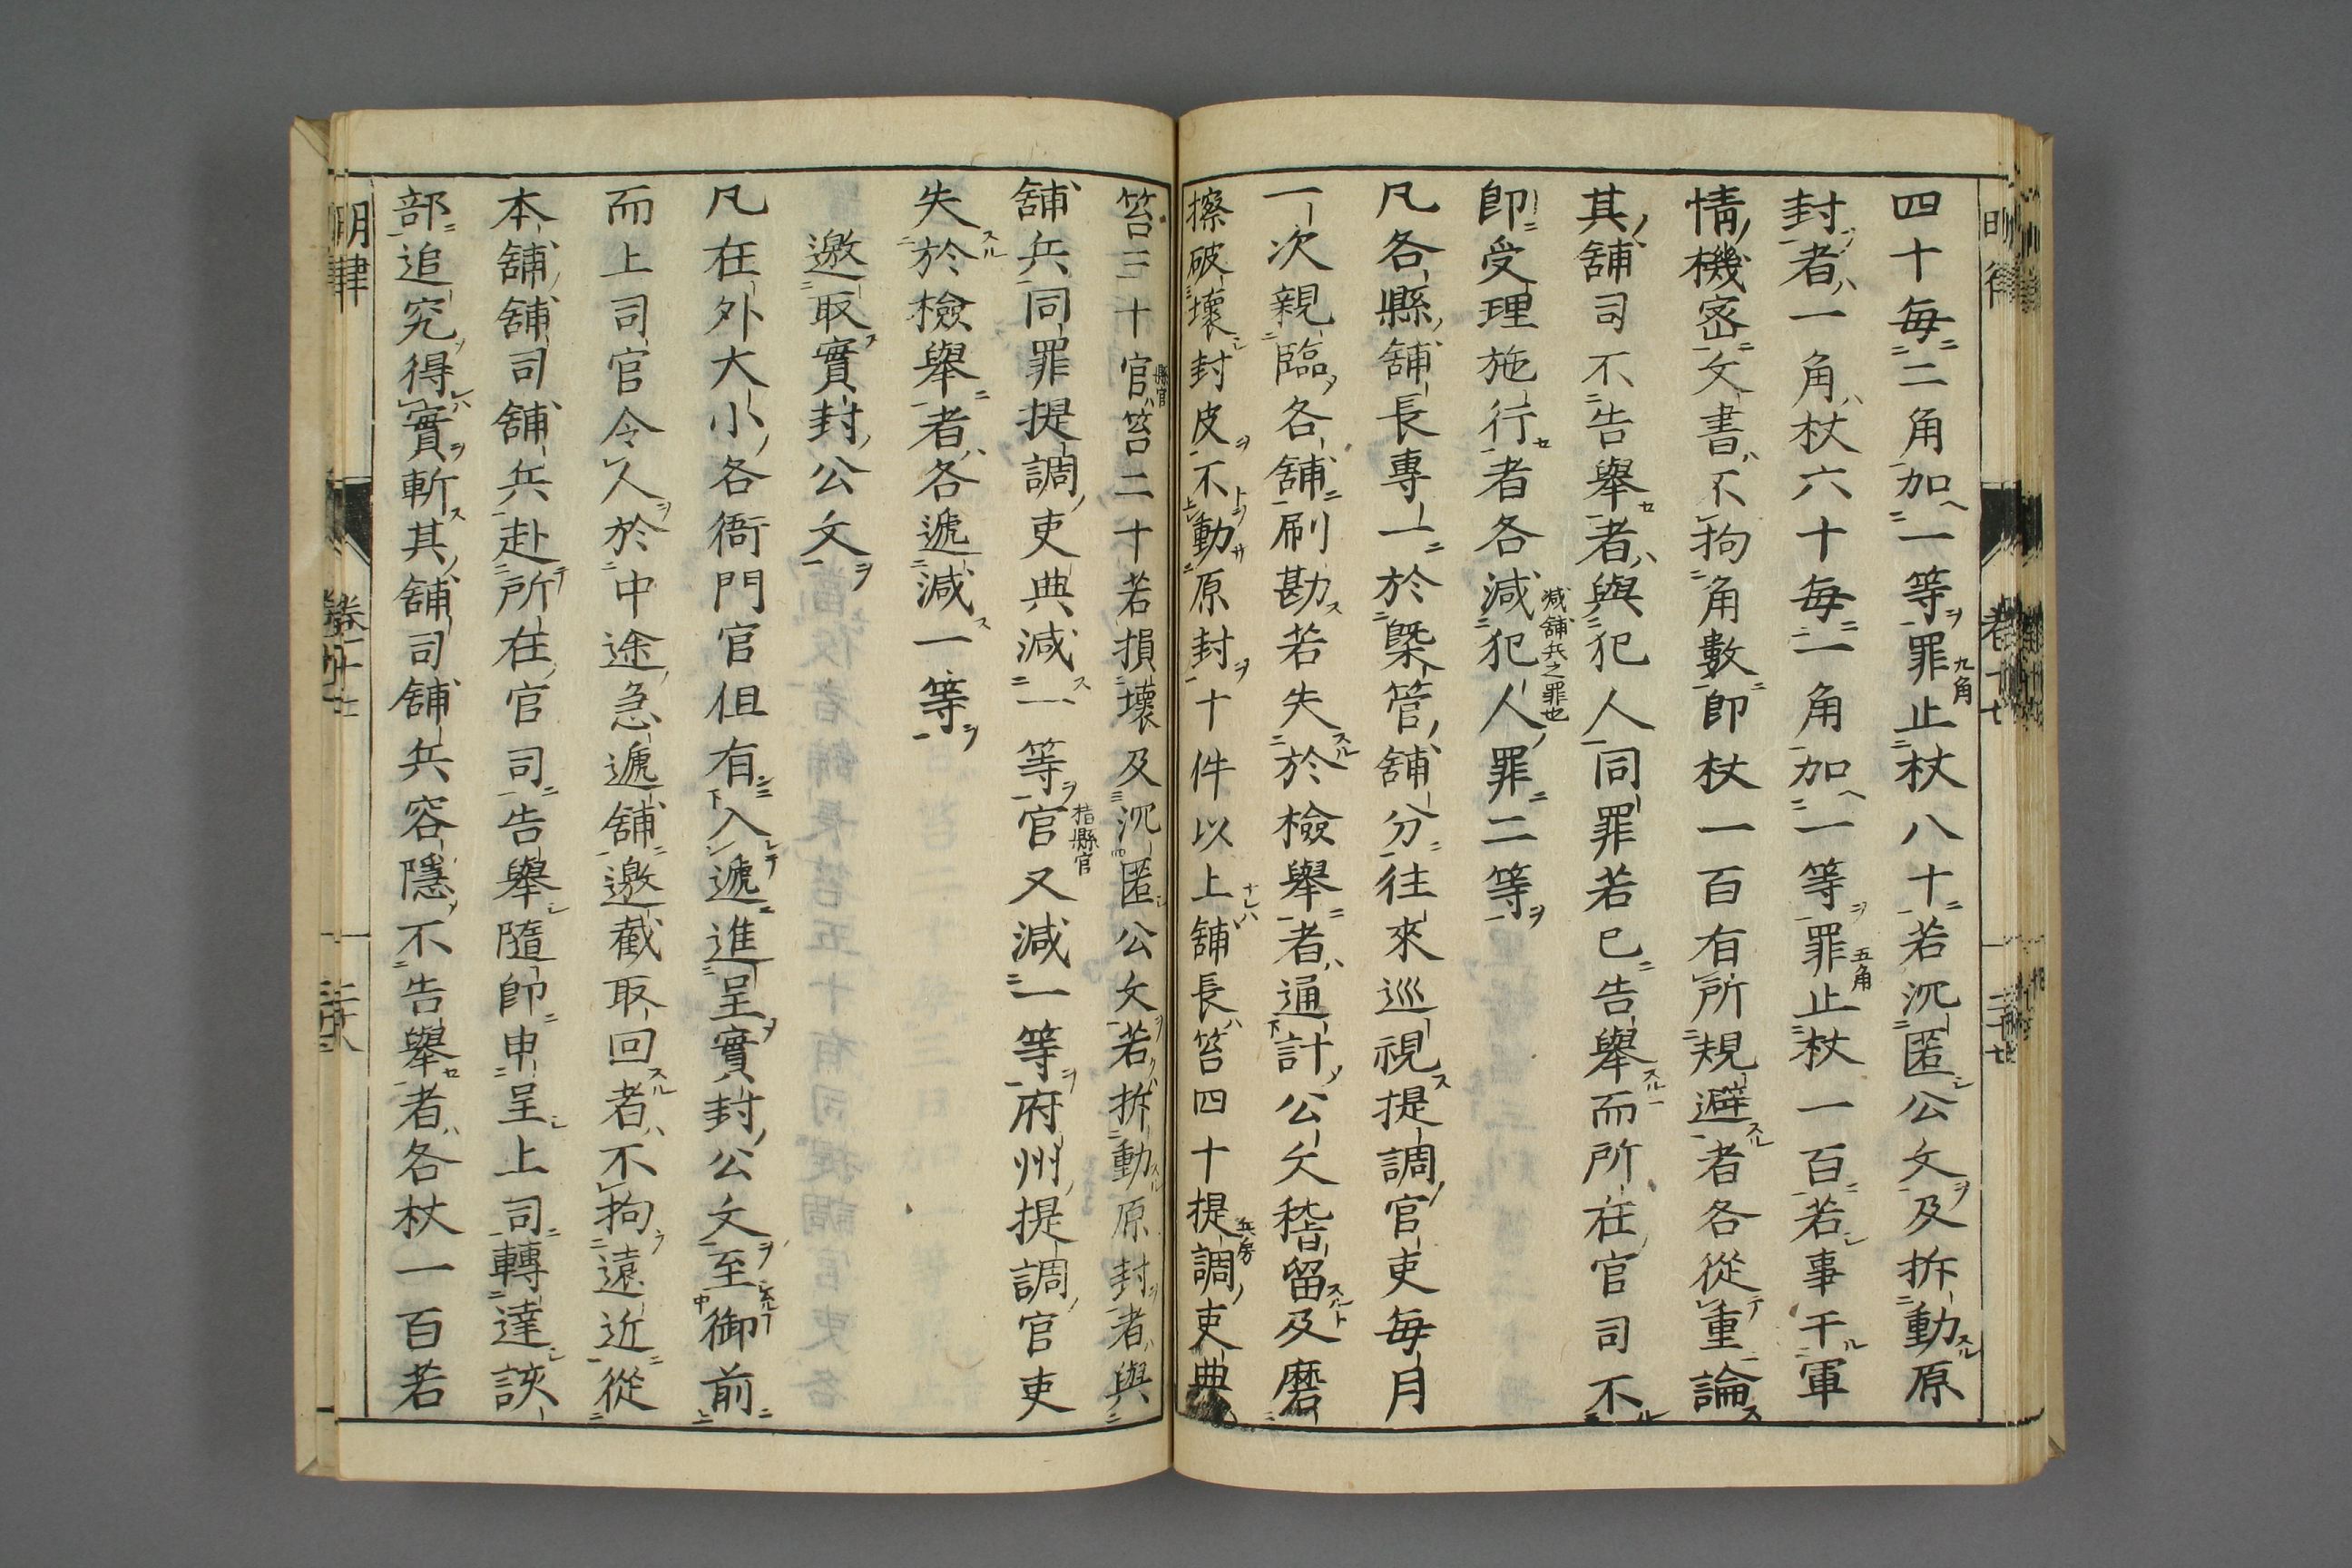 四十每二角加一等罪止杖八十若沉匿公文及拆動原
九角
封者一角杖六十每一角加一等罪止杖一百若事干軍
五角
情機密文書不拘角數卽杖一百有所規避者各從重論
其舖司不告舉者與犯人同罪若已告舉而所在官司不
卽受理施行者各減犯人罪二等
減舖兵之罪也
凡各縣舖長專一於槩管舖分往來巡視提調官吏每月
一次親臨各舖刷勘若失於檢舉者通計公文稽留及磨
擦破壞封皮不動原封十件以上舖長笞四十提調吏典
兵房
笞三十官笞二十若損壞及沉匿公文若拆動原封者與
縣官
舖兵同罪提調吏典減一等官又減一等府州提調官吏
指縣官
失於檢舉者各遞減一等
邀取實封公文
凡在外大小各衙門官但有入遞進呈實封公文至御前
而上司官令人於中途急遞舖邀截取回者不拘遠近從
本舖舖司舖兵赴所在官司告舉隨卽申呈上司轉達該
部追究得實斬其舖司舖兵容隱不告舉者各杖一百若
明律